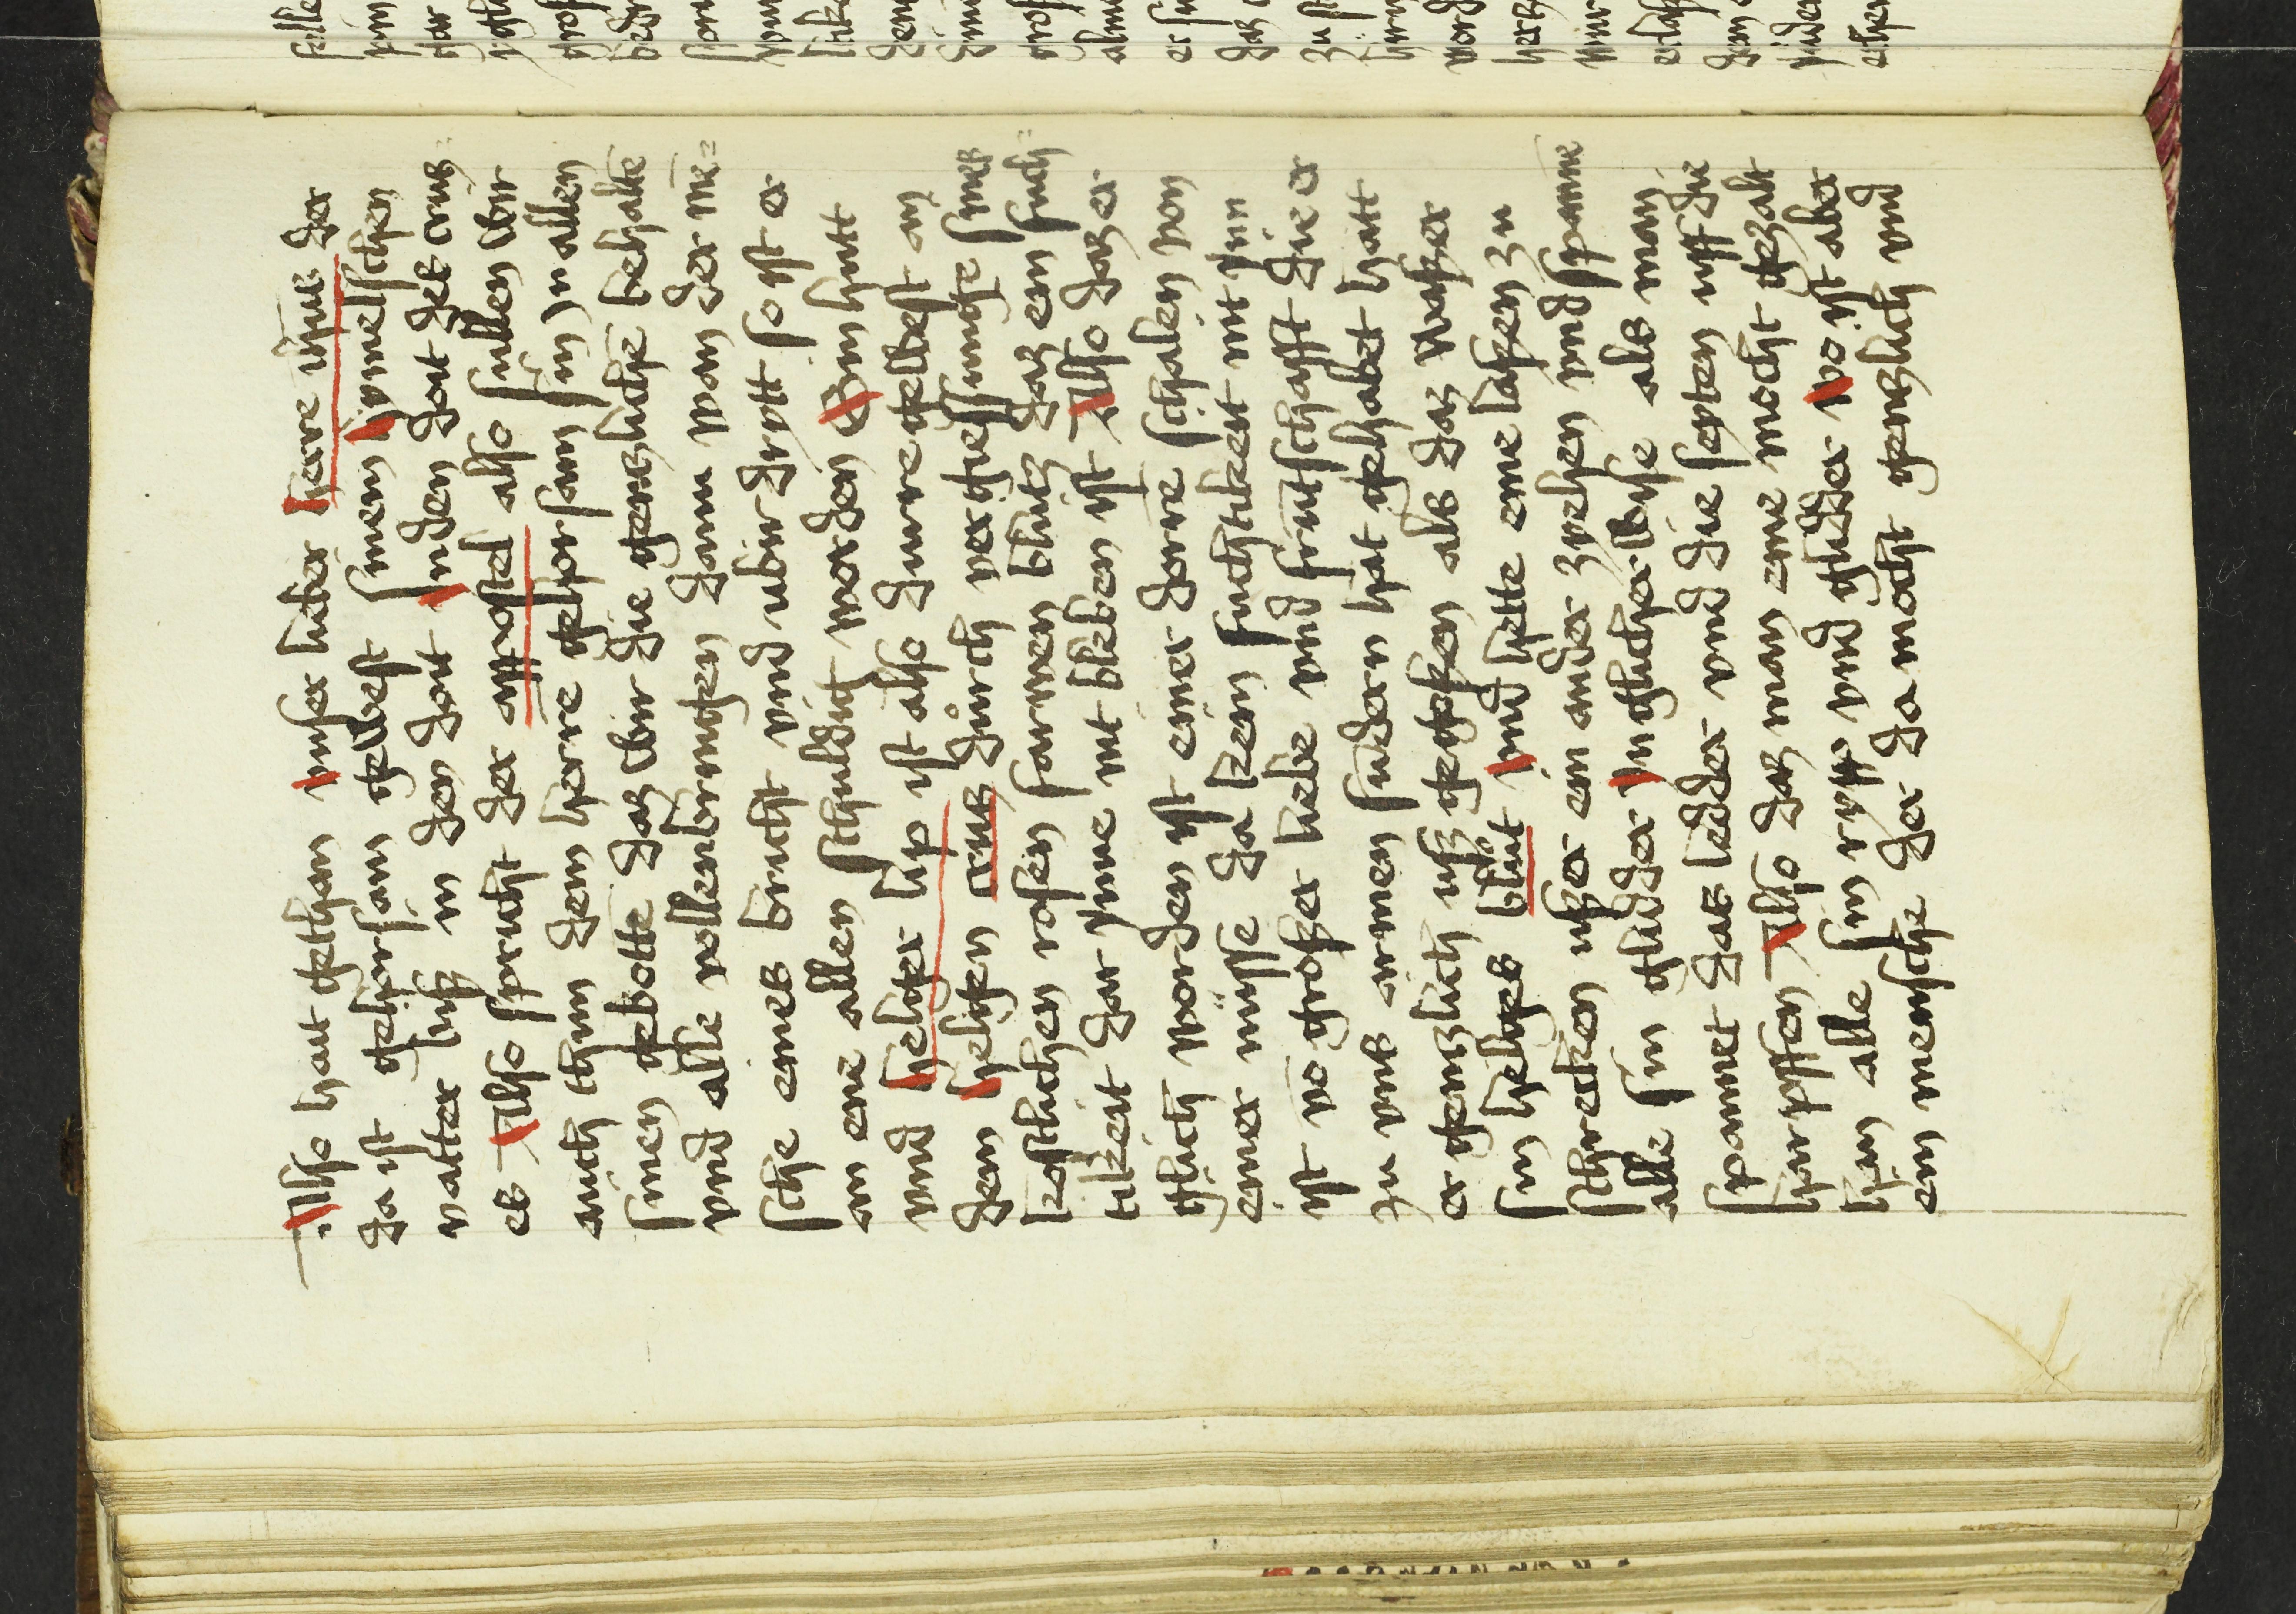 Also hait gethan vnser lieber herre ihesus der
da ist gehorsam gewest sinen hymelschen
vatter biß in den dott Inden dott des crutz
es Also spricht der appostel also sullen wir
auch thun dem herre gehorsam sin in allen
sinen gebotte daz wir die gentzliche behalte
vnd alle vollenbrengen dann wan der me=
sche eines bricht vnd ubir drytt so ist er
an eine allen schuldig worden Sin hutt
vnd heliger lip ist also durre gewest an
dem heligen crutz durch vergiessunge sines
kostlichen rosen farwen blutz daz ein fuch=
tikeit dar ynne nit bleben ist Also daz er
glich worden ist einer dorre schalen von
einer nüsse da kein fuchtikeit mit ynn
ist vo großer liebe vnd fruntschafft die er
zu vns armen sundern hat gehabet hatt
er gentzlich uß gegoßen als daz waßer
sin heliges blut vnd hette eine laßen zu
schrecken ußer ein ander zyehen vnd spanne
alle sin glidder In glicher wyse als man
spannet das ledder vnd die seyten uff die
harpffen Also daz man eme mocht gezalt
han alle sin rypp vnd glidder wo ist aber
ein mensche der da mocht gentzlich vnd